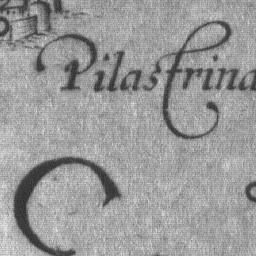 Pilastrina
C